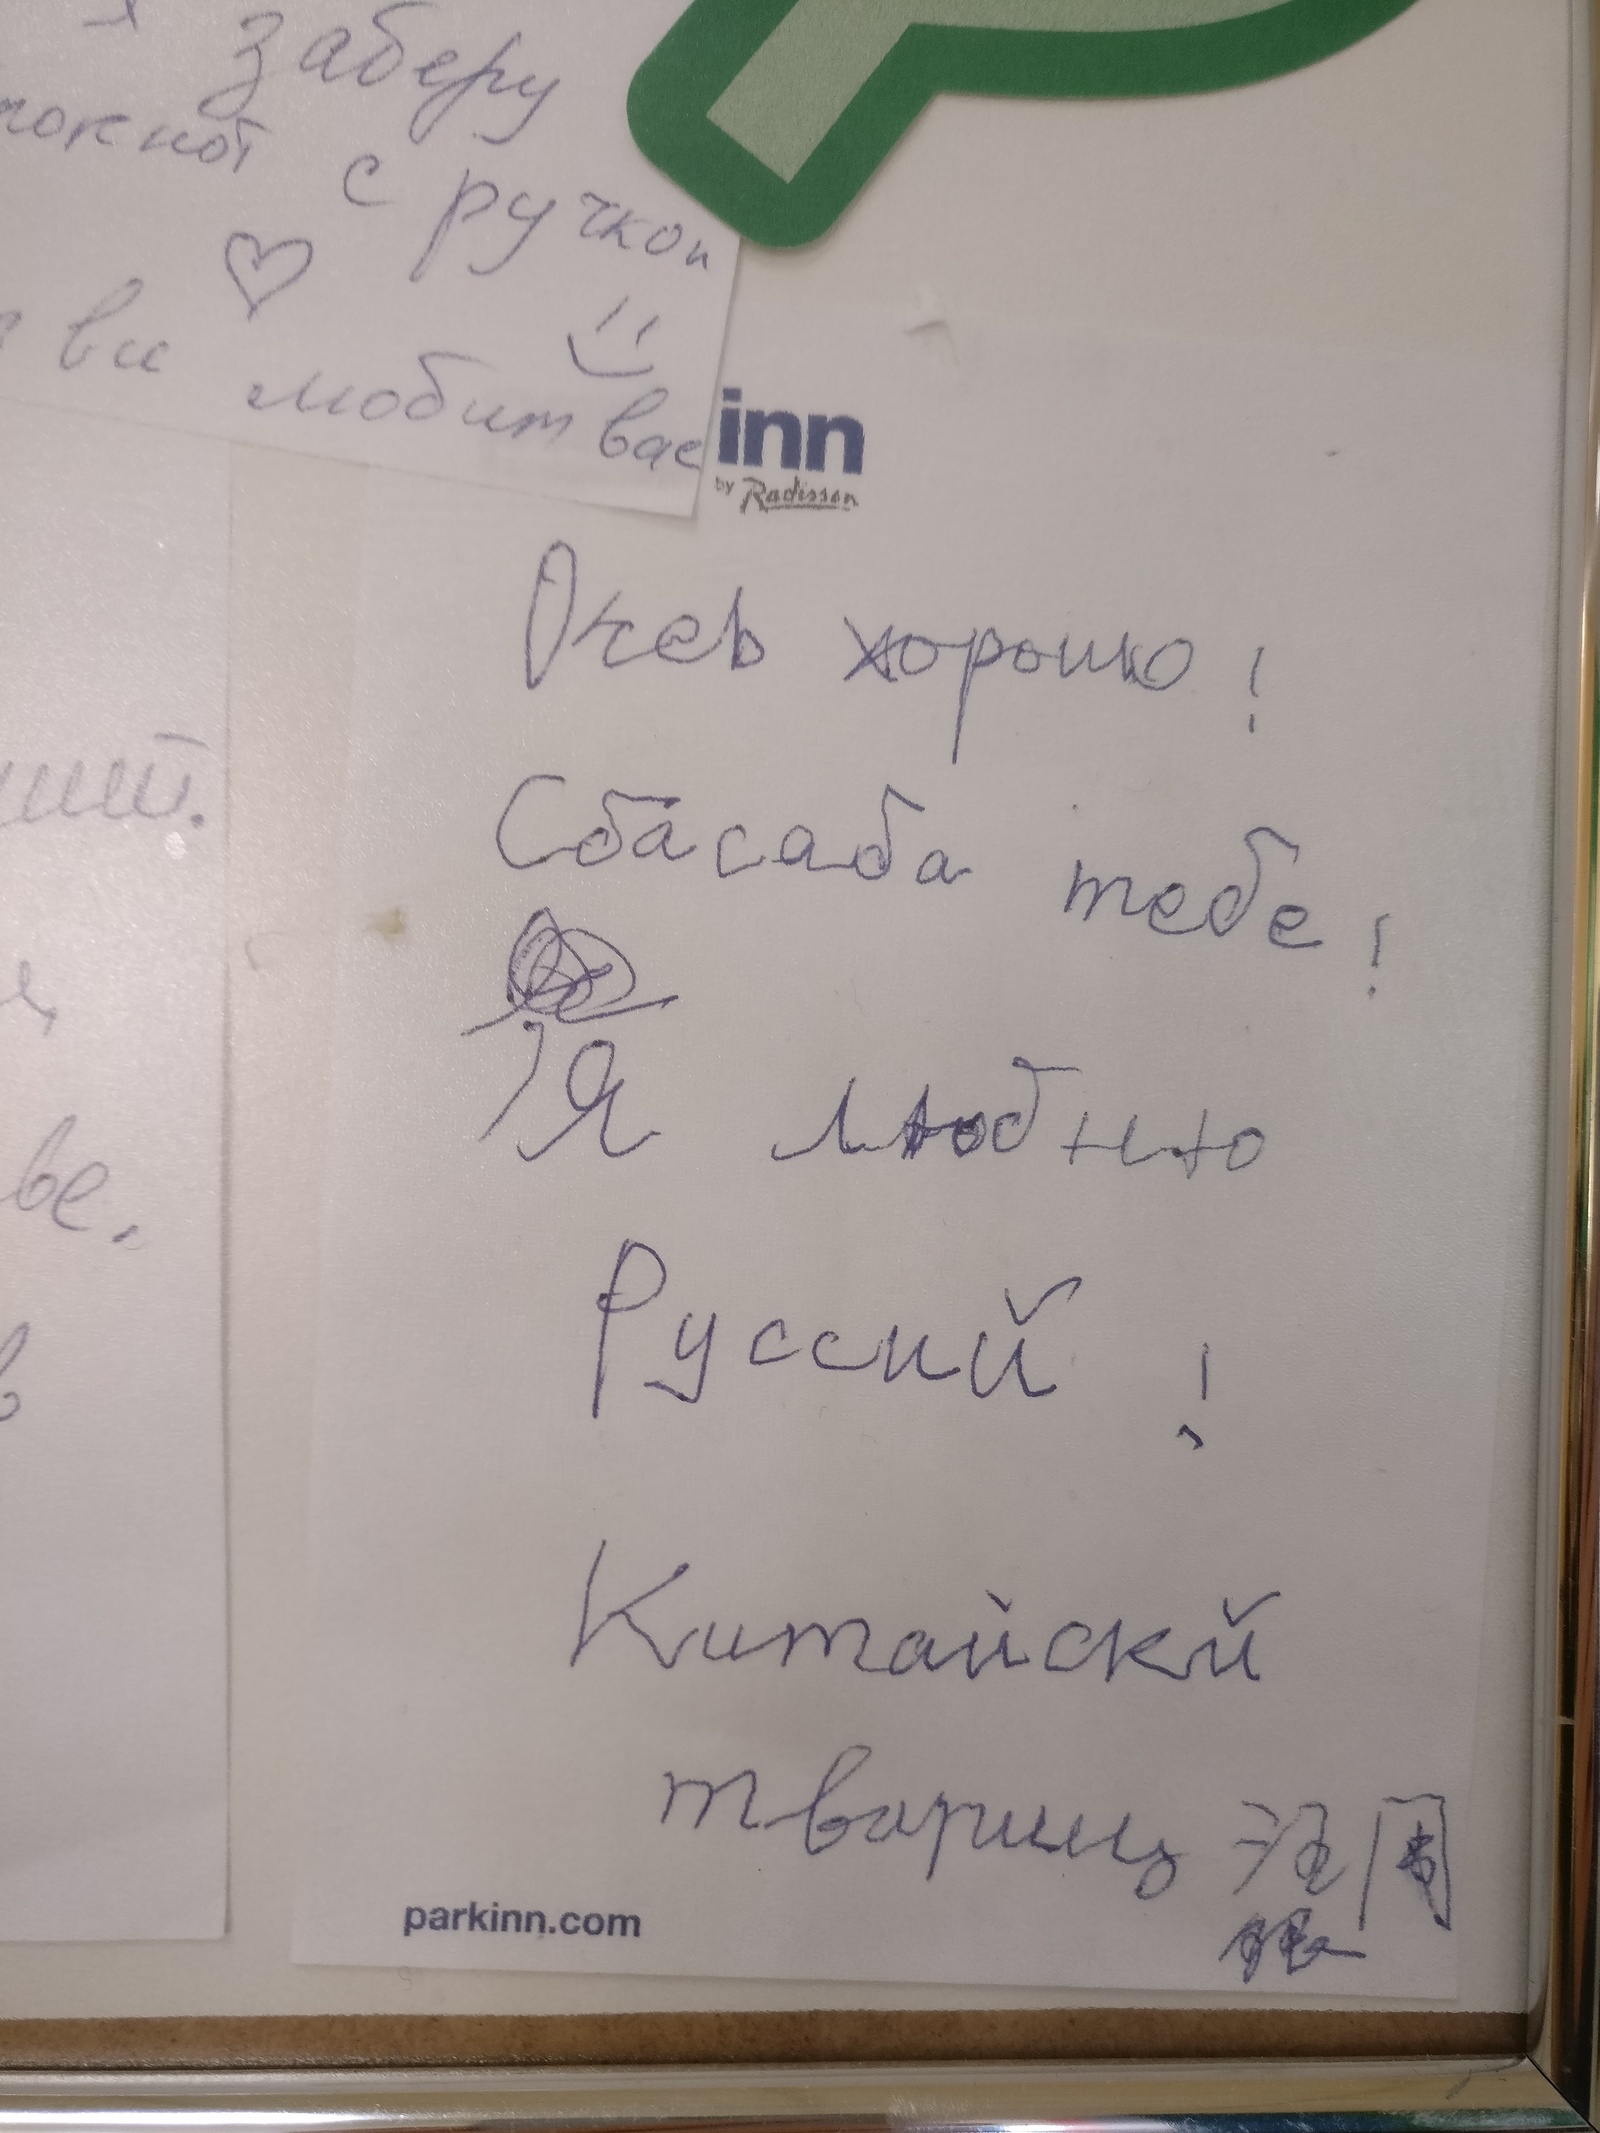 заберу
с ручкой
любит вас
inn
by Radisson
Очеь хорошо!
Сбасаба тебе!
Я люблю
Русский!
Китайскй
тварищ
parkinn.com